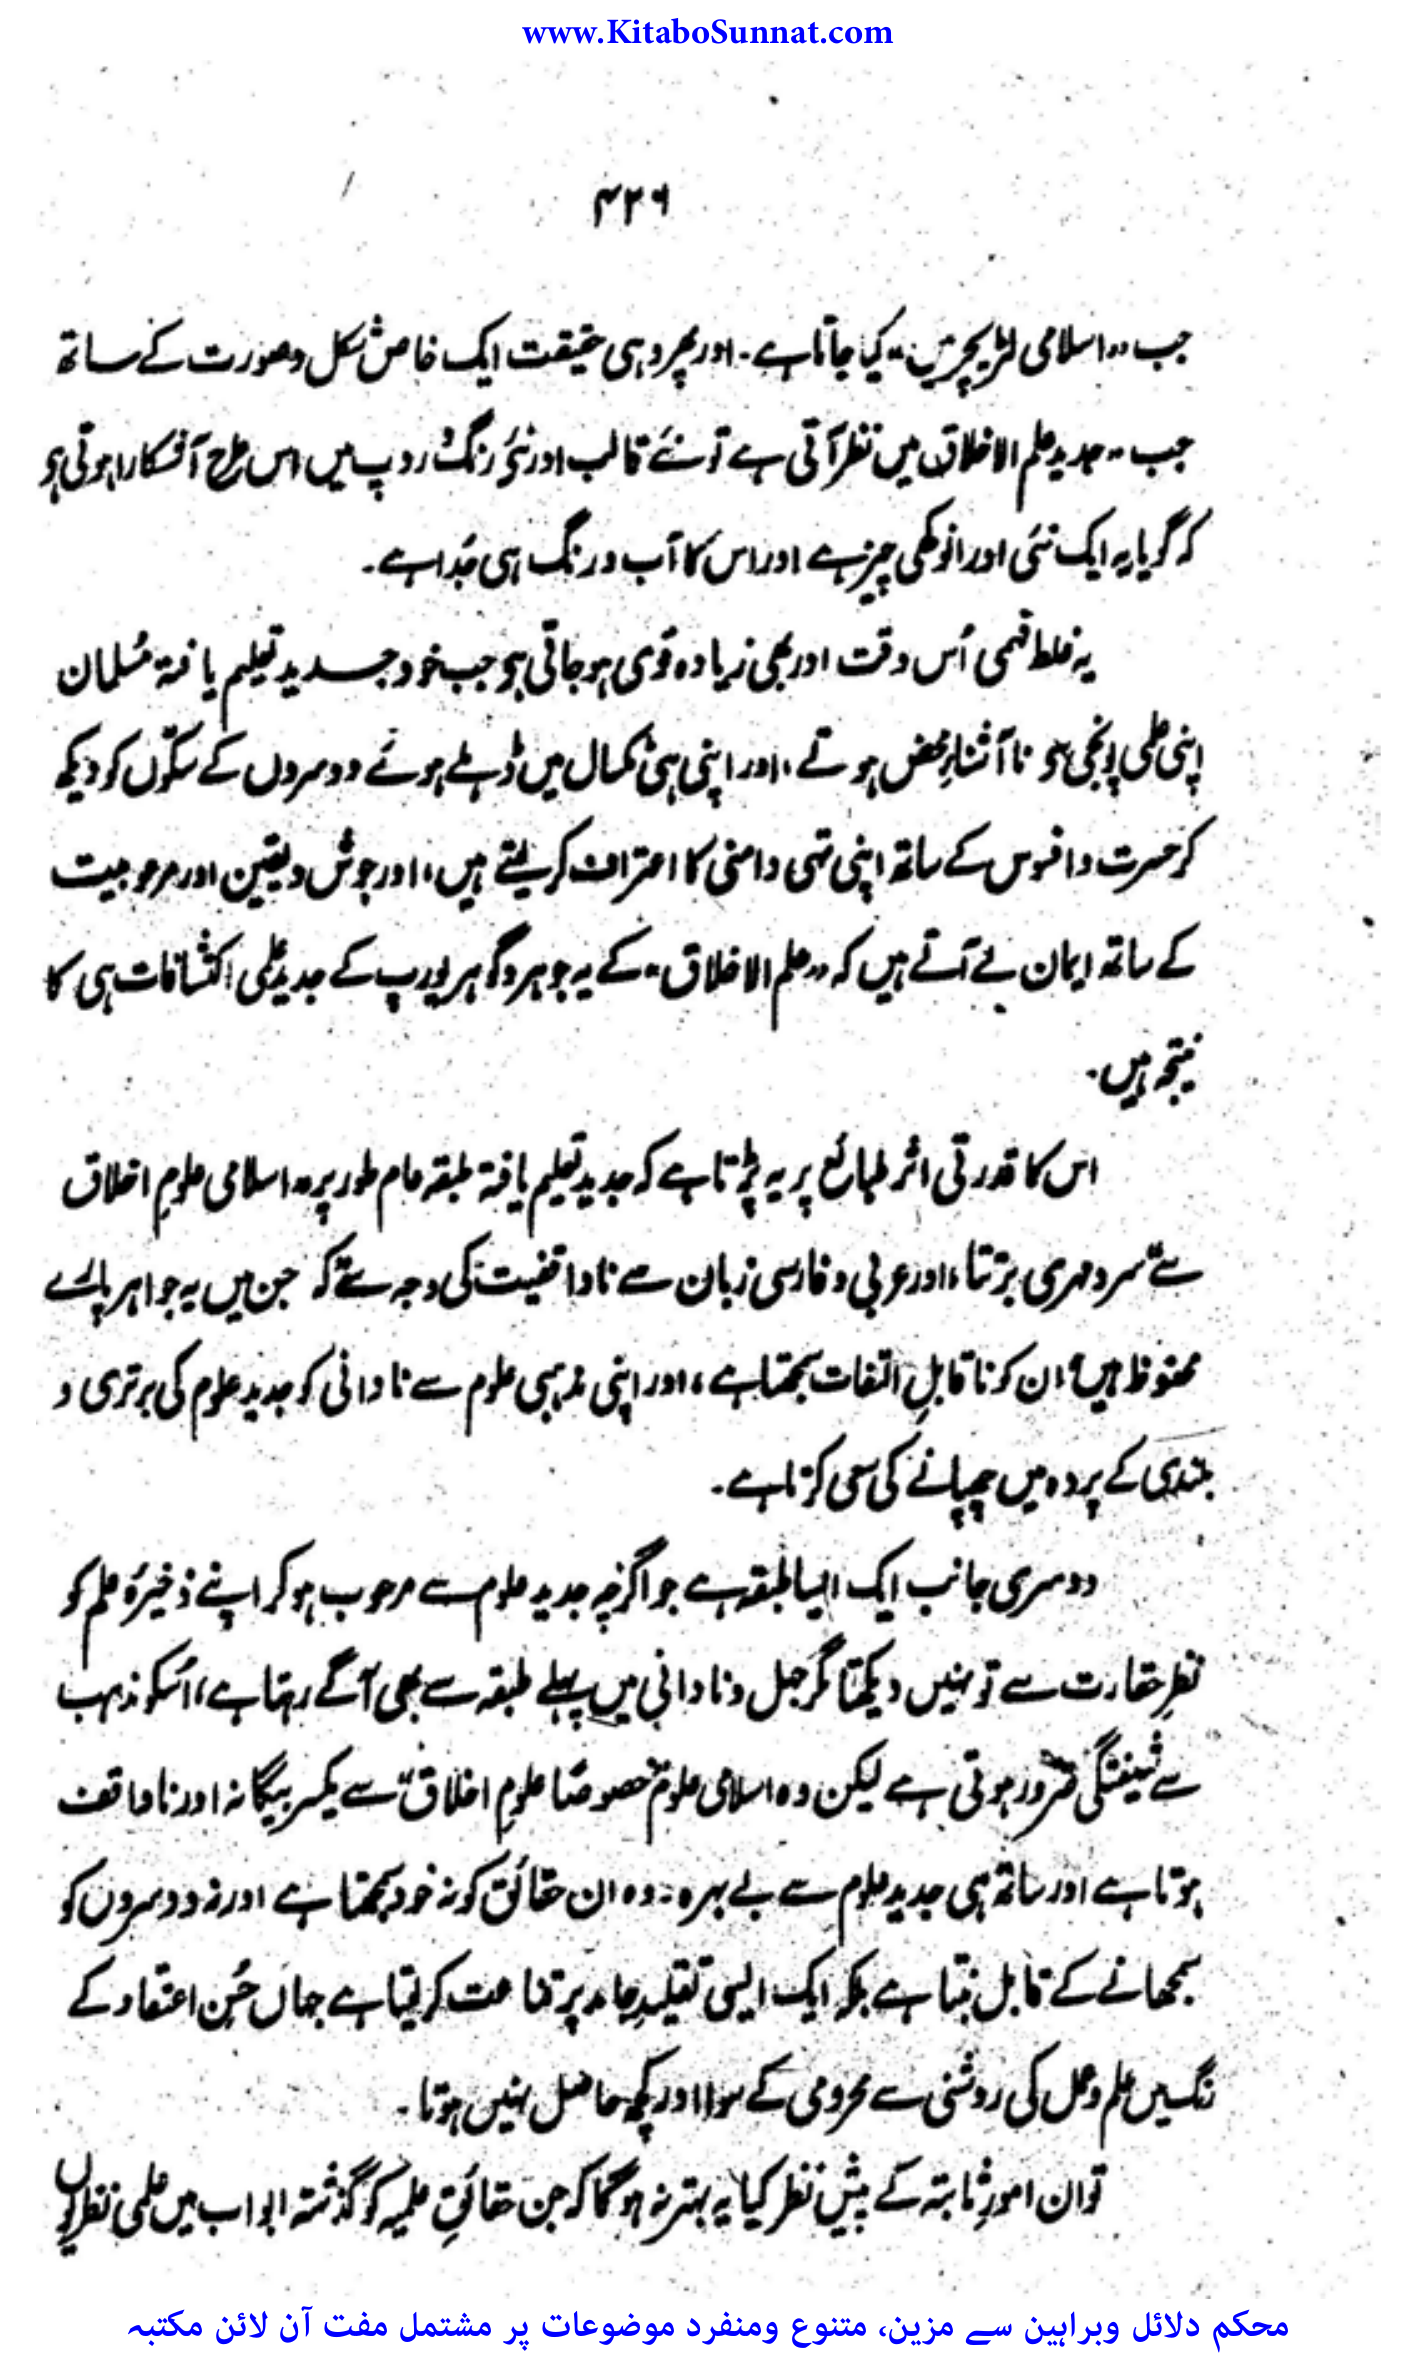 www.KitaboSunnat.com
۴۲۶
جب "اسلامی لٹریچر میں" کیا جاتا ہے۔ اور پھر وہی حقیقت ایک خاص شکل وصورت کے ساتھ
جب "جدید علم الاخلاق میں نظر آتی ہے تو نئے قالب اور نئے رنگ و روپ میں اس طرح آشکارا ہوتی ہو
کہ گویا یہ ایک نئی اور انوکھی چیز ہے اور اس کا آب و رنگ ہی جُدا ہے۔
یہ غلط فہمی اُس وقت اور بھی زیادہ قوی ہو جاتی ہو جب خود جدید تعلیم یافتہ مُسلمان
اپنی علمی پونجی سے ناآشناءِ محض ہوتے، اور اپنی ہی ٹکسال میں ڈہلے ہوئے دوسروں کے سکّوں کو دیکھ
کر حسرت وافسوس کے ساتھ اپنی تہی دامنی کا اعتراف کر لیتے ہیں، اور جوش ویقین اور مرعوبیت
کے ساتھ ایمان لے آتے ہیں کہ "علم الاخلاق" کے یہ جوہر و گوہر یورپ کے جدید علمی اکتشافات ہی کا
نتیجہ ہیں۔
اس کا قدرتی اثر طبائع پر یہ پڑتا ہے کہ جدید تعلیم یافتہ طبقہ عام طور پر "اسلامی علومِ اخلاق
سے" سرد مہری برتتا، اور عربی و فارسی زبان سے ناواقفیت کی وجہ سے کہ جن میں یہ جواہر پارے
محفوظ ہیں ان کو ناقابلِ التفات سمجھتا ہے، اور اپنی مذہبی علوم سے نادانی کو جدید علوم کی برتری و
بلندی کے پردہ میں چھپانے کی سعی کرتا ہے۔
دوسری جانب ایک ایسا طبقہ ہے جو اگرچہ جدید علوم سے مرعوب ہو کر اپنے ذخیرۂ علم کو
نظرِ حقارت سے تو نہیں دیکھتا مگر جہل و نادانی میں پہلے طبقہ سے بھی آگے رہتا ہے، اُسکو مذہب
سے شیفتگی ضرور ہوتی ہے لیکن وہ اسلامی علوم "خصوصًا علومِ اخلاق" سے یکسر بیگانہ اور ناواقف
ہوتا ہے اور ساتھ ہی جدید علوم سے بے بہرہ، وہ ان حقائق کو نہ خود سمجھتا ہے اور نہ دوسروں کو
سمجھانے کے قابل بنتا ہے بلکہ ایک ایسی تقلیدِ جامد پر قناعت کر لیتا ہے جہاں حُسنِ اعتقاد کے
رنگ میں علم و عمل کی روشنی سے محرومی کے سوا اور کچھ حاصل نہیں ہوتا۔
تو ان امورِ ثابتہ کے پیش نظر کیا یہ بہتر نہ ہوگا کہ جن حقائقِ علمیہ کو گذشتہ ابواب میں علمی نظریوں
محکم دلائل وبراہین سے مزین، متنوع ومنفرد موضوعات پر مشتمل مفت آن لائن مکتبہ